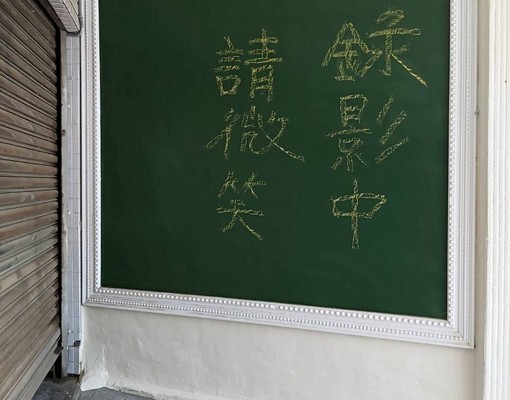 錄影中
請微笑